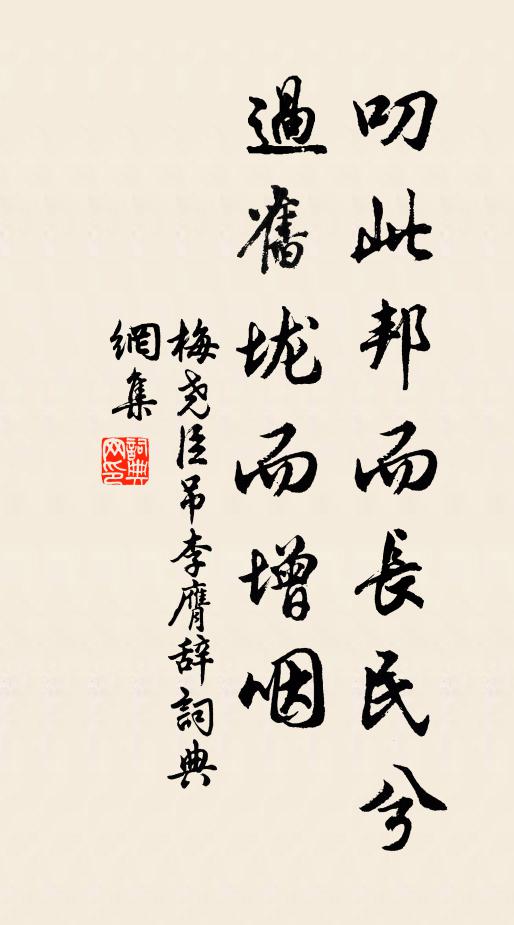 叨此邦而長民兮
過舊垅而增咽
梅尧臣吊李膺辞詞典
網集
詞典网印